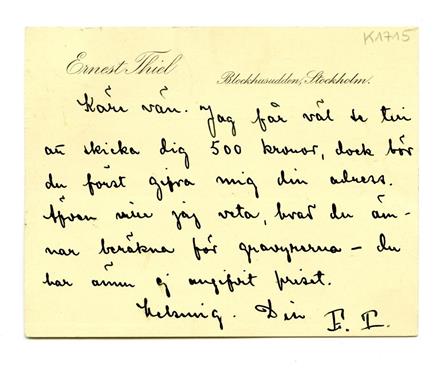 K1715
Ernest Thiel
Blockhusudden, Stockholm.
Käre vän. Jag får väl se till
att skicka dig 500 kronor, dock bör
du först gifva mig din adress.
Äfven vill jag veta, hvad du äm-
nar beräkna för gravyrerna – du
har ännu ej angifvit priset.
Helsning. Din E. T.